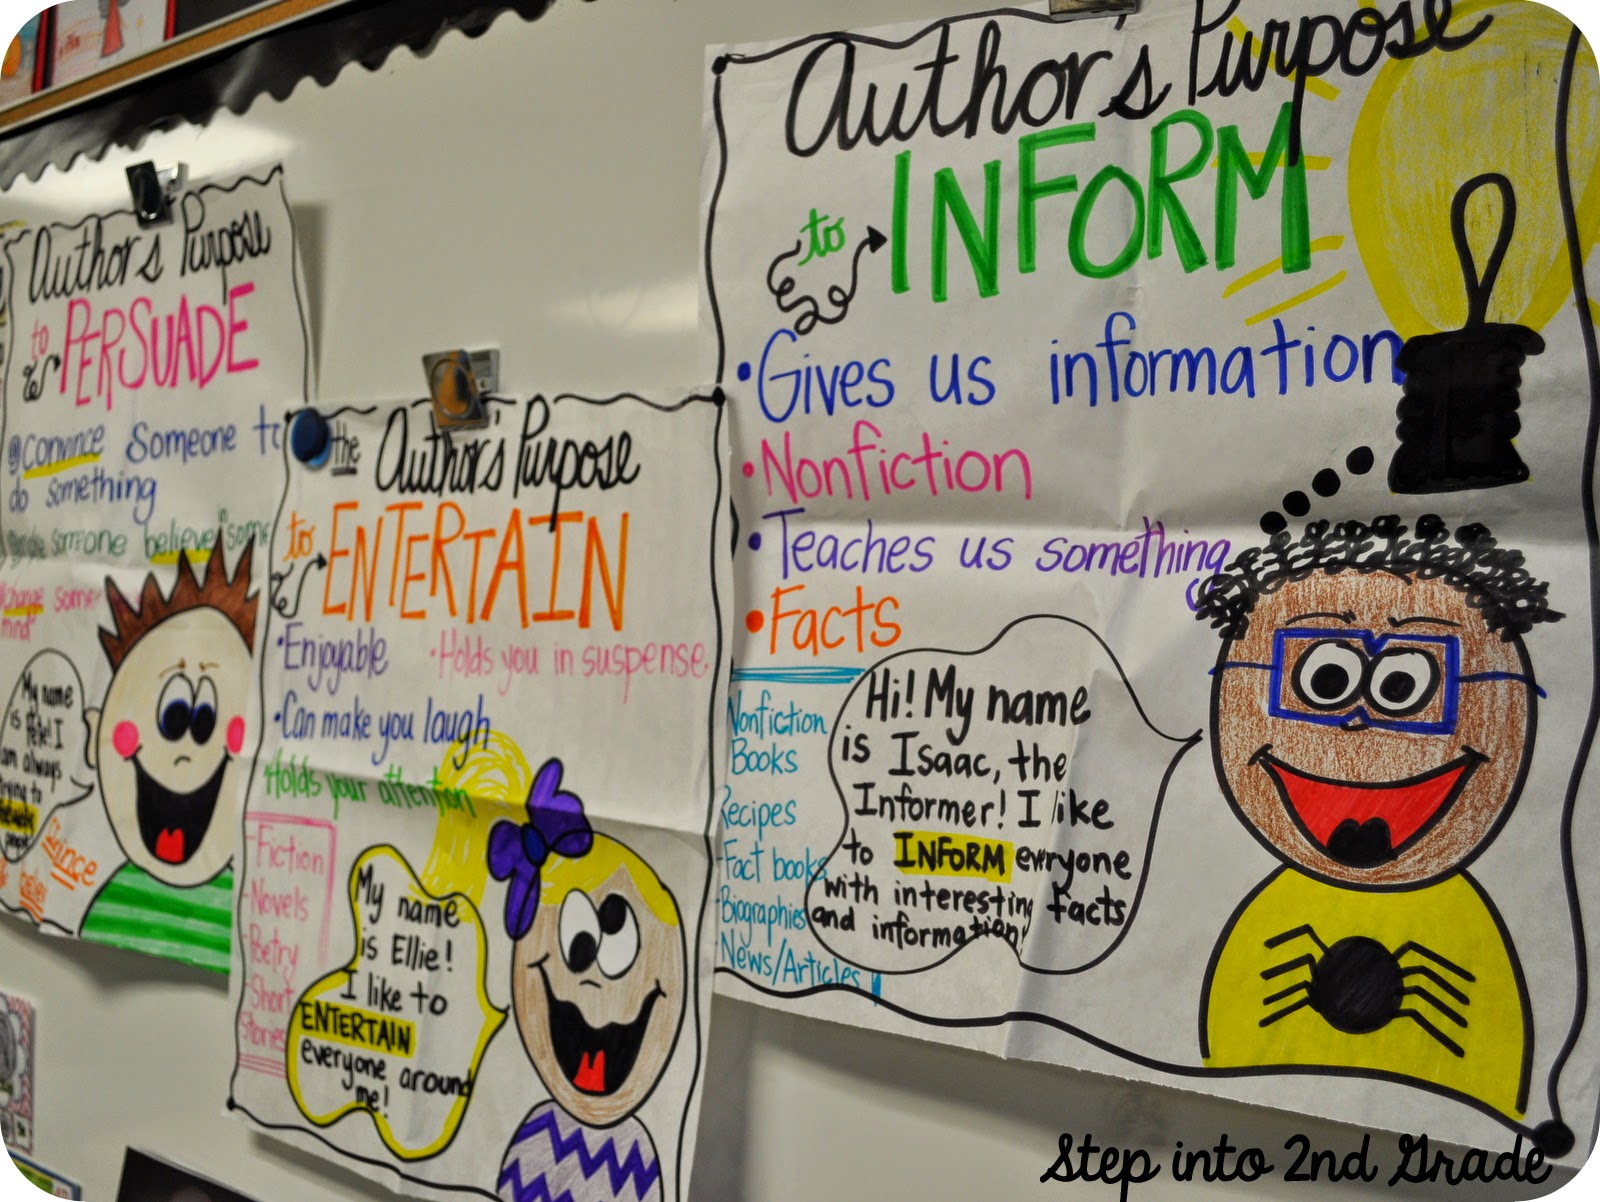 Author's Purpose
to PERSUADE
Convince Someone to
do something
someone believe "some
Change some
mind"
My name
is Pete! I
am always
trying to
Persuade
people
Author's Purpose
the
to ENTERTAIN
•Enjoyable
•Holds you in suspense.
•Can make you laugh
•Holds your attention
-Fiction
-Novels
-Poetry
-Short
Stories
My name
is Ellie!
I like to
ENTERTAIN
everyone around
me!
Author's Purpose
to INFORM
•Gives us information
•Nonfiction
•Teaches us something
•Facts
Nonfiction
Books
Recipes
-Fact books
-Biographies
-News/Articles
Hi! My name
is Isaac, the
Informer! I like
to INFORM everyone
with interesting facts
and information!
Step into 2nd Grade